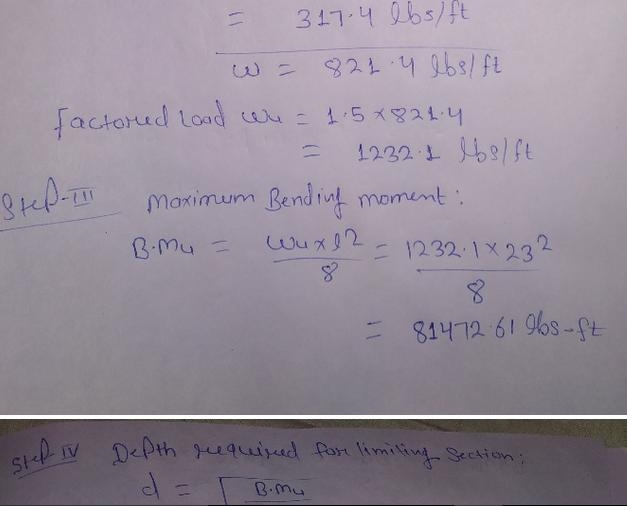 = 317.4 lbs/ft
w = 821.4 lbs/ft
factored load wu = 1.5 x 821.4
= 1232.1 lbs/ft
Step-III Maximum Bending moment:
B.Mu = wu x l2 / 8 = 1232.1 x 23² / 8
= 81472.61 lbs-ft
Step-IV Depth required for limiting section:
d = √ B.Mu